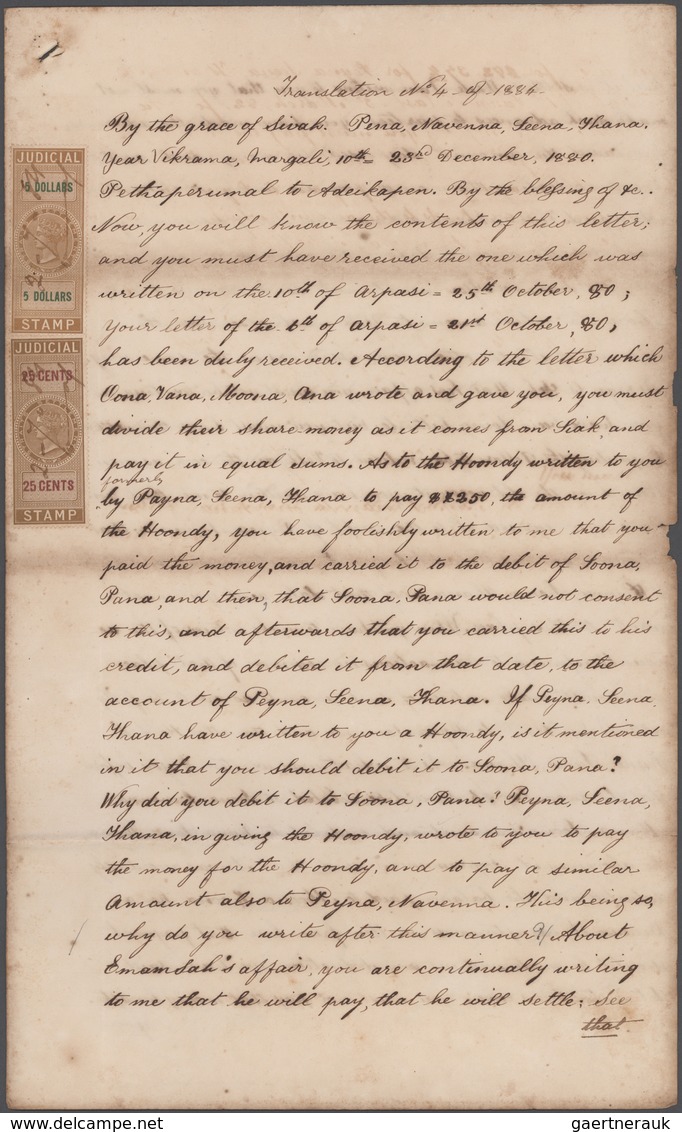 Translation No. 4 of 1884.
By the grace of Sivah. Pena, Navenna, Seena, Thana.
Year Vikrama, Margali, 10th = 23rd December, 1880.
Pethaperumal to Adeikapen. By the blessing of &c..
Now, you will know the contents of this letter;
and you must have received the one which was
written on the 10th of Arpasi = 25th October, 80;
Your letter of the 6th of Arpasi = 21st October, 80,
has been duly received. According to the letter which
Oona, Vana, Moona, Ana wrote and gave you, you must
divide their share money as it comes from Siak, and
pay it in equal sums. As to the Hoondy written to you
formerly
by Payna, Seena, Thana to pay $1250, the amount of
the Hoondy, you have foolishly written to me that you
paid the money, and carried it to the debit of Soona,
Pana, and then, that Soona, Pana would not consent
to this, and afterwards that you carried this to his
credit, and debited it from that date, to the
account of Peyna, Seena, Thana. If Peyna, Seena,
Thana have written to you a Hoondy, is it mentioned
in it that you should debit it to Soona, Pana?
Why did you debit it to Soona, Pana? Peyna, Seena,
Thana, in giving the Hoondy, wrote to you to pay
the money for the Hoondy, and to pay a similar
amount also to Peyna, Navenna. This being so,
why do you write after this manner? About
Emamsah's affair, you are continually writing
to me that he will pay, that he will settle; See
that
JUDICIAL
5 DOLLARS
5 DOLLARS
STAMP
JUDICIAL
25 CENTS
25 CENTS
STAMP
delcampe.net
gaertnerauk